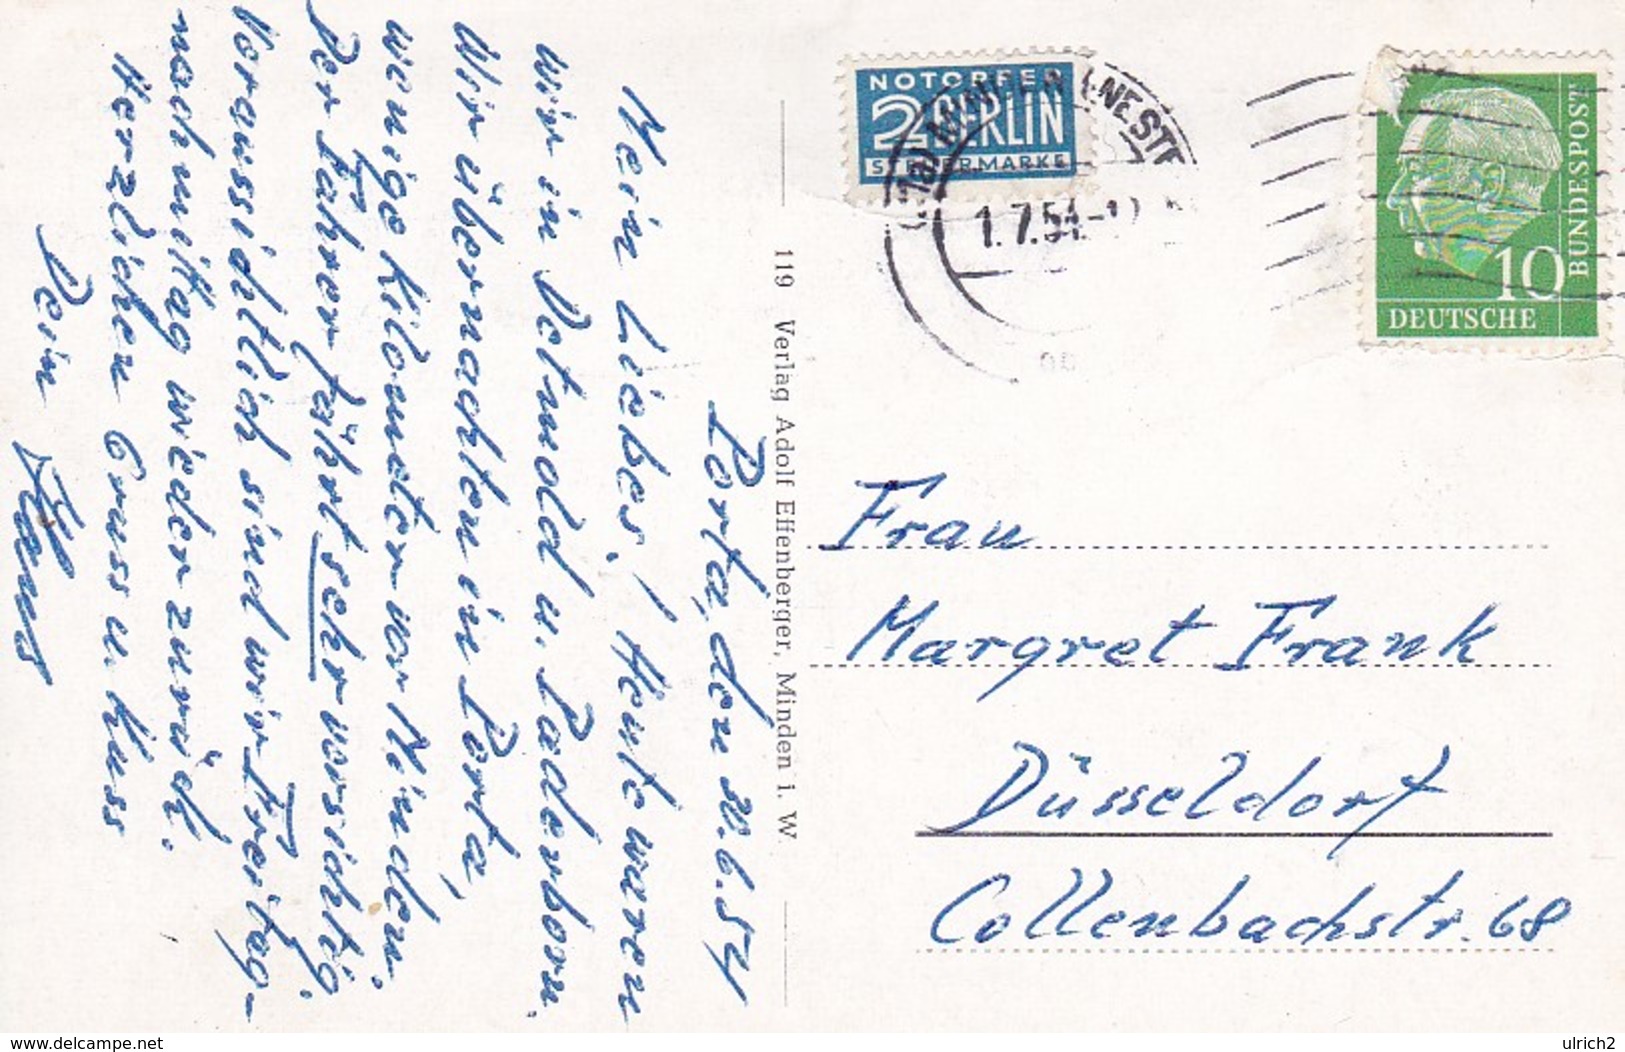 Porta, den 30.6.54
Mein Liebes! Heute waren
wir in Detmold u. Paderborn.
Wir übernachten in Porta,
wenige Kilometer vor Minden.
Der Fahrer fährt sehr vorsichtig.
Voraussichtlich sind wir Freitag-
nachmittag wieder zurück.
Herzlichen Gruss u. Kuss
Dein
Hans
119 Verlag Adolf Effenberger, Minden i. W.
NOTOPFER
2 BERLIN
STEUERMARKE
(21a) MINDEN (WESTF
1.7.54
10
DEUTSCHE
BUNDESPOST
Frau
Margret Frank
Düsseldorf
Collenbachstr. 68
www.delcampe.net
ulrich2